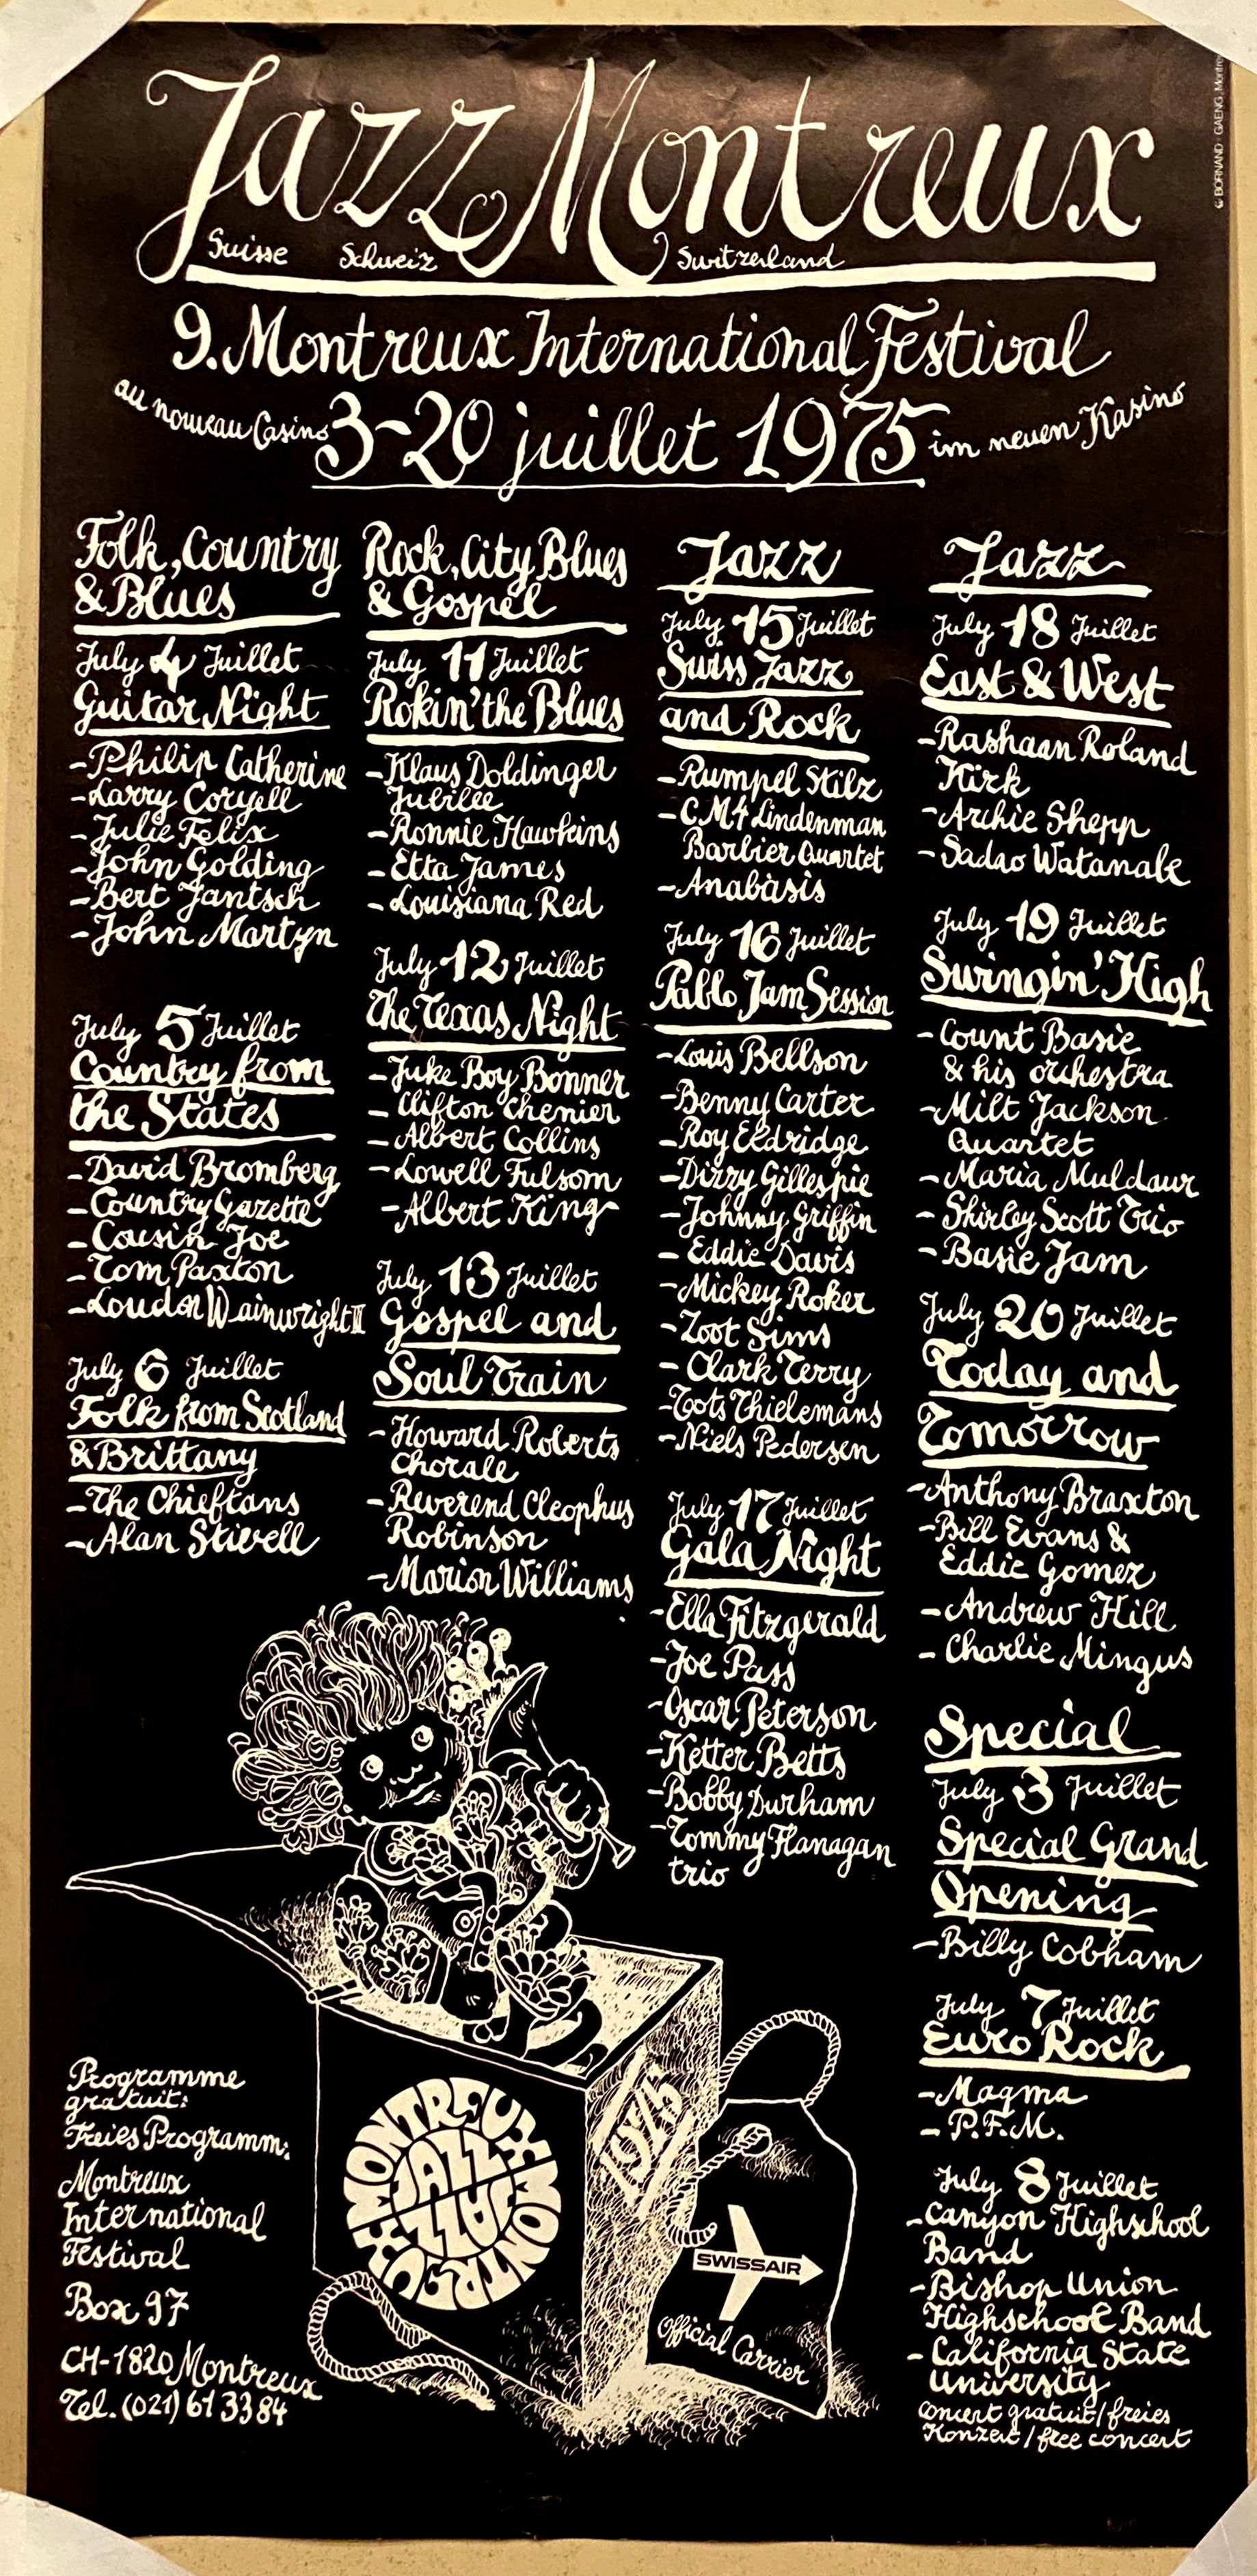 Jazz Montreux
Suisse Schweiz Switzerland
9. Montreux International Festival
au nouveau Casino 3-20 juillet 1975 im neuen Kasino
Folk, Country
& Blues
July 4 Juillet
Guitar Night
-Philip Catherine
-Larry Coryell
-Julie Felix
-John Golding
-Bert Jantsch
-John Martyn
July 5 Juillet
Country from
the States
-David Bromberg
-Country Gazette
-Cousin Joe
-Tom Paxton
-Loudon Wainwright III
July 6 Juillet
Folk from Scotland
& Brittany
-The Chieftans
-Alan Stivell
Rock, City Blues
& Gospel
July 11 Juillet
Rokin' the Blues
-Klaus Doldinger
Jubilee
-Ronnie Hawkins
-Etta James
-Louisiana Red
July 12 Juillet
The Texas Night
-Juke Boy Bonner
-Clifton Chenier
-Albert Collins
-Lowell Fulsom
-Albert King
July 13 Juillet
Gospel and
Soul Train
-Howard Roberts
Chorale
-Reverend Cleophus
Robinson
-Marion Williams
Jazz
July 15 Juillet
Swiss Jazz
and Rock
-Rumpel Stilz
-CM4 Lindenman
Barbier Quartet
-Anabàsis
July 16 Juillet
Pablo Jam Session
-Louis Bellson
-Benny Carter
-Roy Eldridge
-Dizzy Gillespie
-Johnny Griffin
-Eddie Davis
-Mickey Roker
-Zoot Sims
-Clark Terry
-Toots Thielemans
-Niels Pedersen
July 17 Juillet
Gala Night
-Ella Fitzgerald
-Joe Pass
-Oscar Peterson
-Ketter Betts
-Bobby Durham
-Tommy Flanagan
trio
Jazz
July 18 Juillet
East & West
-Rashaan Roland
Kirk
-Archie Shepp
-Sadao Watanabe
July 19 Juillet
Swingin' High
-Count Basie
& his orchestra
-Milt Jackson
Quartet
-Maria Muldaur
-Shirley Scott Trio
-Basie Jam
July 20 Juillet
Today and
Tomorrow
-Anthony Braxton
-Bill Evans &
Eddie Gomez
-Andrew Hill
-Charlie Mingus
Special
July 3 Juillet
Special Grand
Opening
-Billy Cobham
July 7 Juillet
Euro Rock
-Magma
-P.F.M.
July 8 Juillet
-Canyon Highschool
Band
-Bishop Union
Highschool Band
-California State
University
concert gratuit / freies
Konzert / free concert
Programme
gratuit:
Freies Programm:
Montreux
International
Festival
Box 97
CH-1820 Montreux
Tel. (021) 61 33 84
MONTREUX MONTREUX
JAZZ JAZZ
1975
SWISSAIR
Official Carrier
© BORNAND GAENG, Montre